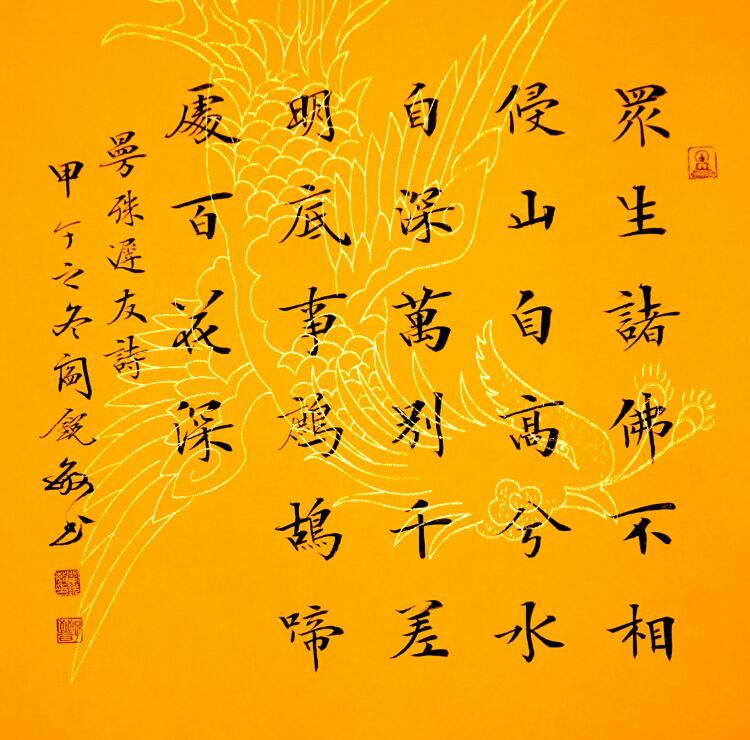 眾生諸佛不相
侵山自高兮水
自深萬別千差
明底事鷓鴣啼
處百花深
曼殊遲友詩
甲午之冬閻銳敏書